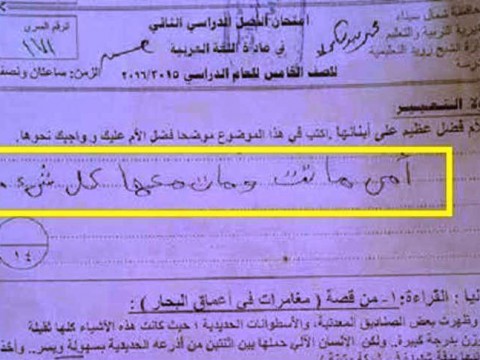 محافظة شمال سيناء
مديرية التربية والتعليم
إدارة الشيخ زويد التعليمية
امتحان الفصل الدراسي الثاني
في مادة اللغة العربية
للصف الخامس للعام الدراسي ٢٠١٦/٢٠١٥
الرقم السرى
الزمن: ساعتان ونصف
ولا التعبير
للأم فضل عظيم على أبنائها. اكتب في هذا الموضوع موضحا فضل الأم عليك وواجبك نحوها.
أمى ماتت ومات معها كل شىء
١٤
القراءة: ١- من قصة ( مغامرات في أعماق البحار ) :
وظهرت بعض الصناديق المعدنية، والأسطوانات الحديدية ؛ حيث كانت هذه الأشياء كلها ثقيلة
بدرجة كبيرة.. ولكن الإنسان الآلي حملها بين اثنتين من أذرعه الحديدية بسهولة ويسر..